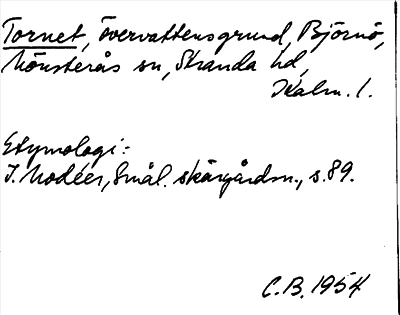 Tornet, övervattensgrund, Björnö,
Mönsterås sn, Stranda hd,
Kalm. l.
Etymologi:
I. Modéer, Smål. skärgårdsn., s. 89.
C.B. 1954